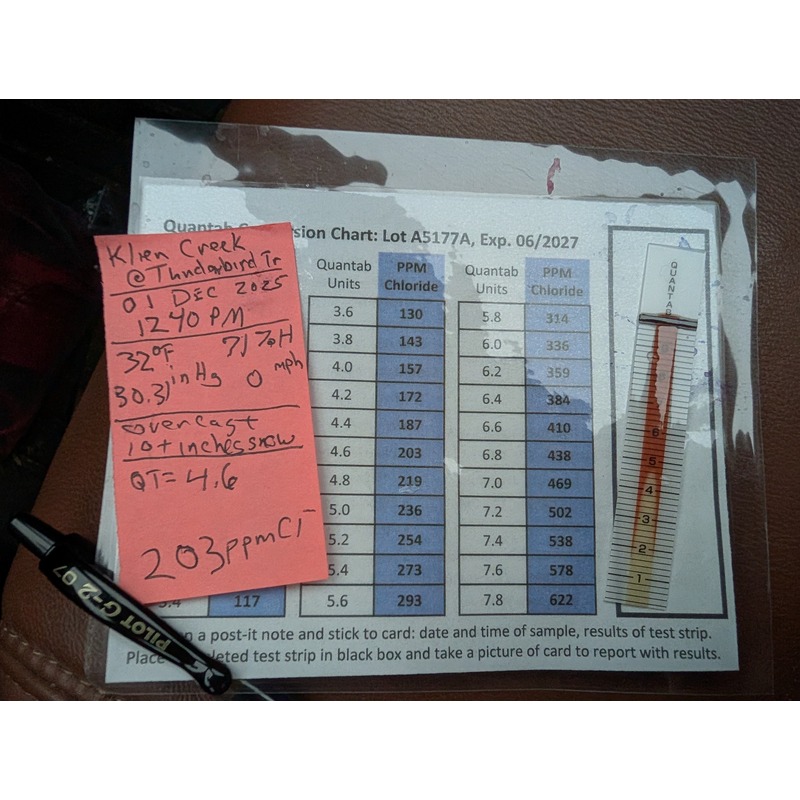 Quantab sion Chart: Lot A5177A, Exp. 06/2027
Klien Creek
@Thunderbird Tr
01 DEC 2025
1240 PM
32°F 71%H
30.31 inHg 0 mph
overcast
10+ inches snow
QT= 4.6
203ppmCl-
Quantab Units PPM Chloride
3.6 130
3.8 143
4.0 157
4.2 172
4.4 187
4.6 203
4.8 219
5.0 236
5.2 254
5.4 273
5.6 293
3.4 117
Quantab Units PPM Chloride
5.8 314
6.0 336
6.2 359
6.4 384
6.6 410
6.8 438
7.0 469
7.2 502
7.4 538
7.6 578
7.8 622
QUANTAB
6
5
4
3
2
1
n a post-it note and stick to card: date and time of sample, results of test strip.
Place leted test strip in black box and take a picture of card to report with results.
PILOT G-2 07